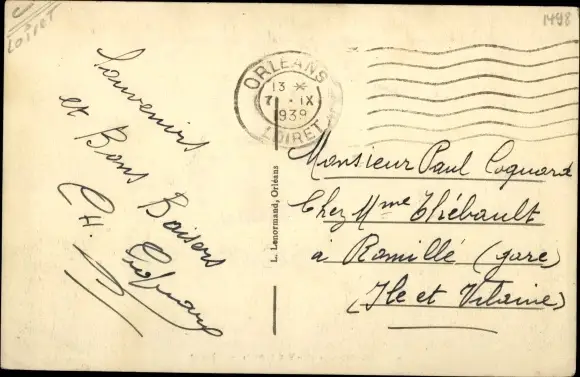 Loiret
1498
Souvenirs
et Bons Baisers
CH. Coquard
ORLEANS
13 *
7 - IX
1939
LOIRET
L. Lenormand, Orléans
Monsieur Paul Coquard
Chez Mme Thiébault
à Romillé (gare)
(Ile et Vilaine)